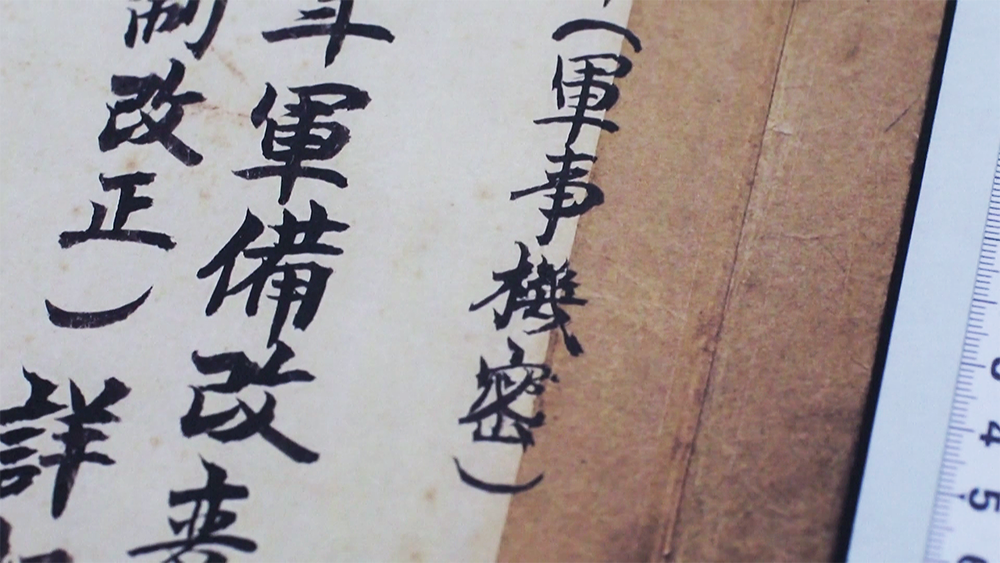 （軍事機密）
軍備改
制改正）
詳
4
5